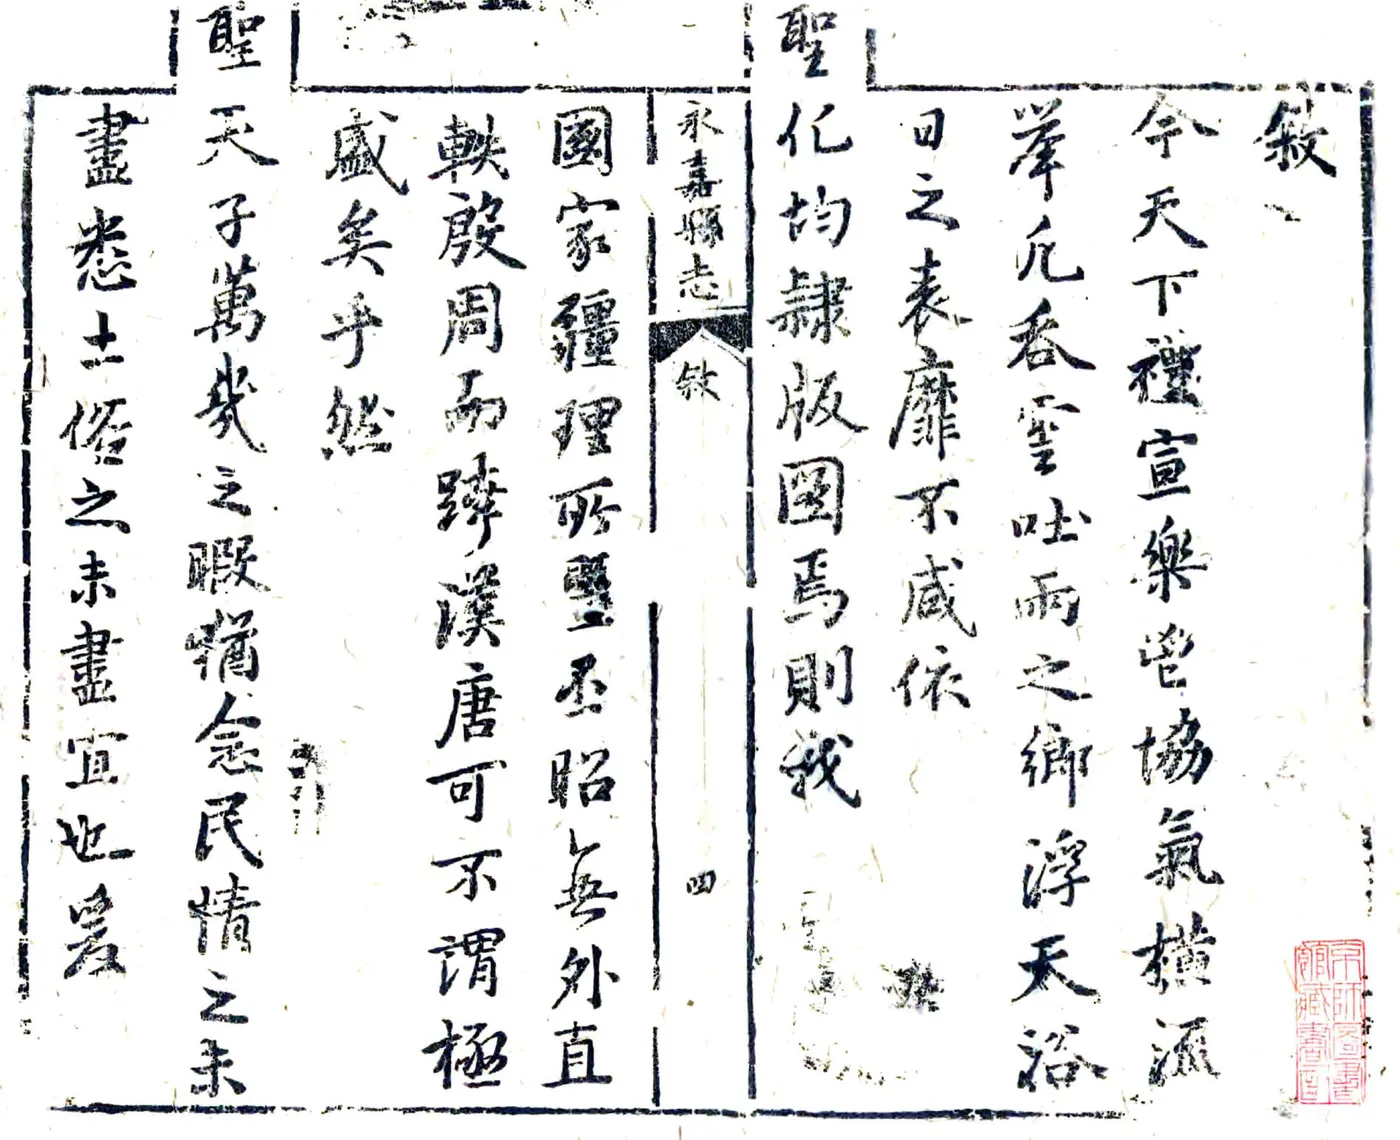 敘
今天下禮宣樂鬯協氣橫流
舉凡吞雲吐雨之鄉浮天浴
日之表靡不咸依
聖化均隸版圖焉則我
永嘉縣志 敘 四
國家疆理所暨丕昭無外直
軼殷周而跨漢唐可不謂極
盛矣乎然
聖天子萬幾之暇猶念民情之未
盡悉土俗之未盡宜也爰
京師圖書館藏書印